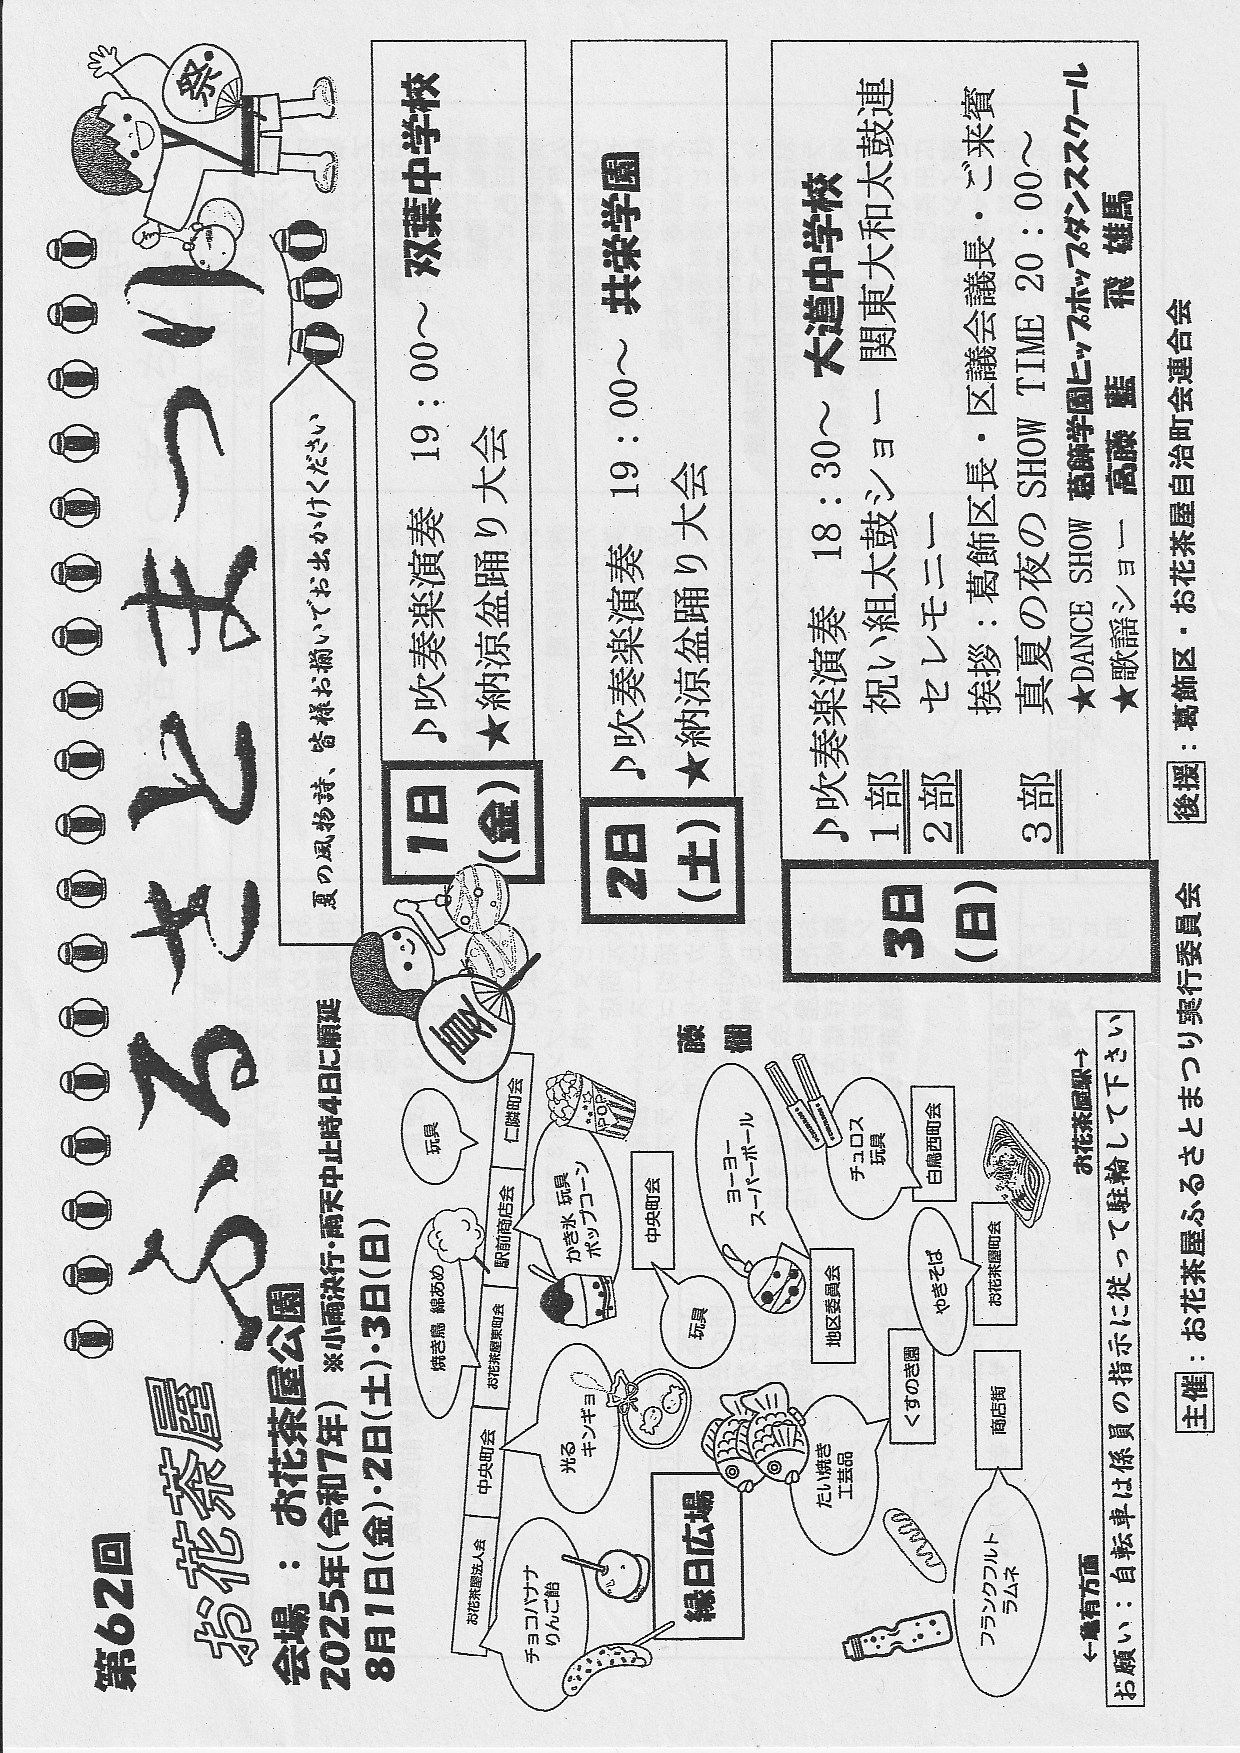 第62回
お花茶屋
ふるさとまつり
会場：お花茶屋公園
2025年(令和7年) ※小雨決行・雨天中止時4日に順延
8月1日(金)・2日(土)・3日(日)
夏の風物詩、皆様お揃いでお出かけください
祭
1日
(金)
♪吹奏楽演奏 19：00～ 双葉中学校
★納涼盆踊り大会
2日
(土)
♪吹奏楽演奏 19：00～ 共栄学園
★納涼盆踊り大会
3日
(日)
♪吹奏楽演奏 18：30～ 大道中学校
1部 祝い組太鼓ショー 関東大和太鼓連
2部 セレモニー
挨拶：葛飾区長・区議会議長・ご来賓
3部 真夏の夜のSHOW TIME 20：00～
★DANCE SHOW 葛飾学園ヒップホップダンススクール
★歌謡ショー 高藤 藍 飛 雄馬
お花茶屋法人会
中央町会
お花茶屋東町会
駅前商店会
仁隣町会
チョコバナナ
りんご飴
光る
キンギョ
焼き鳥 綿あめ
かき氷 玩具
ポップコーン
POP
玩具
縁日広場
玩具
中央町会
藤棚
たい焼き
工芸品
くすのき園
地区委員会
ヨーヨー
スーパーボール
チュロス
玩具
白鳥西町会
フランクフルト
ラムネ
商店街
やきそば
お花茶屋町会
←亀有方面
お花茶屋駅→
お願い：自転車は係員の指示に従って駐輪して下さい
主催：お花茶屋ふるさとまつり実行委員会
後援：葛飾区・お花茶屋自治町会連合会